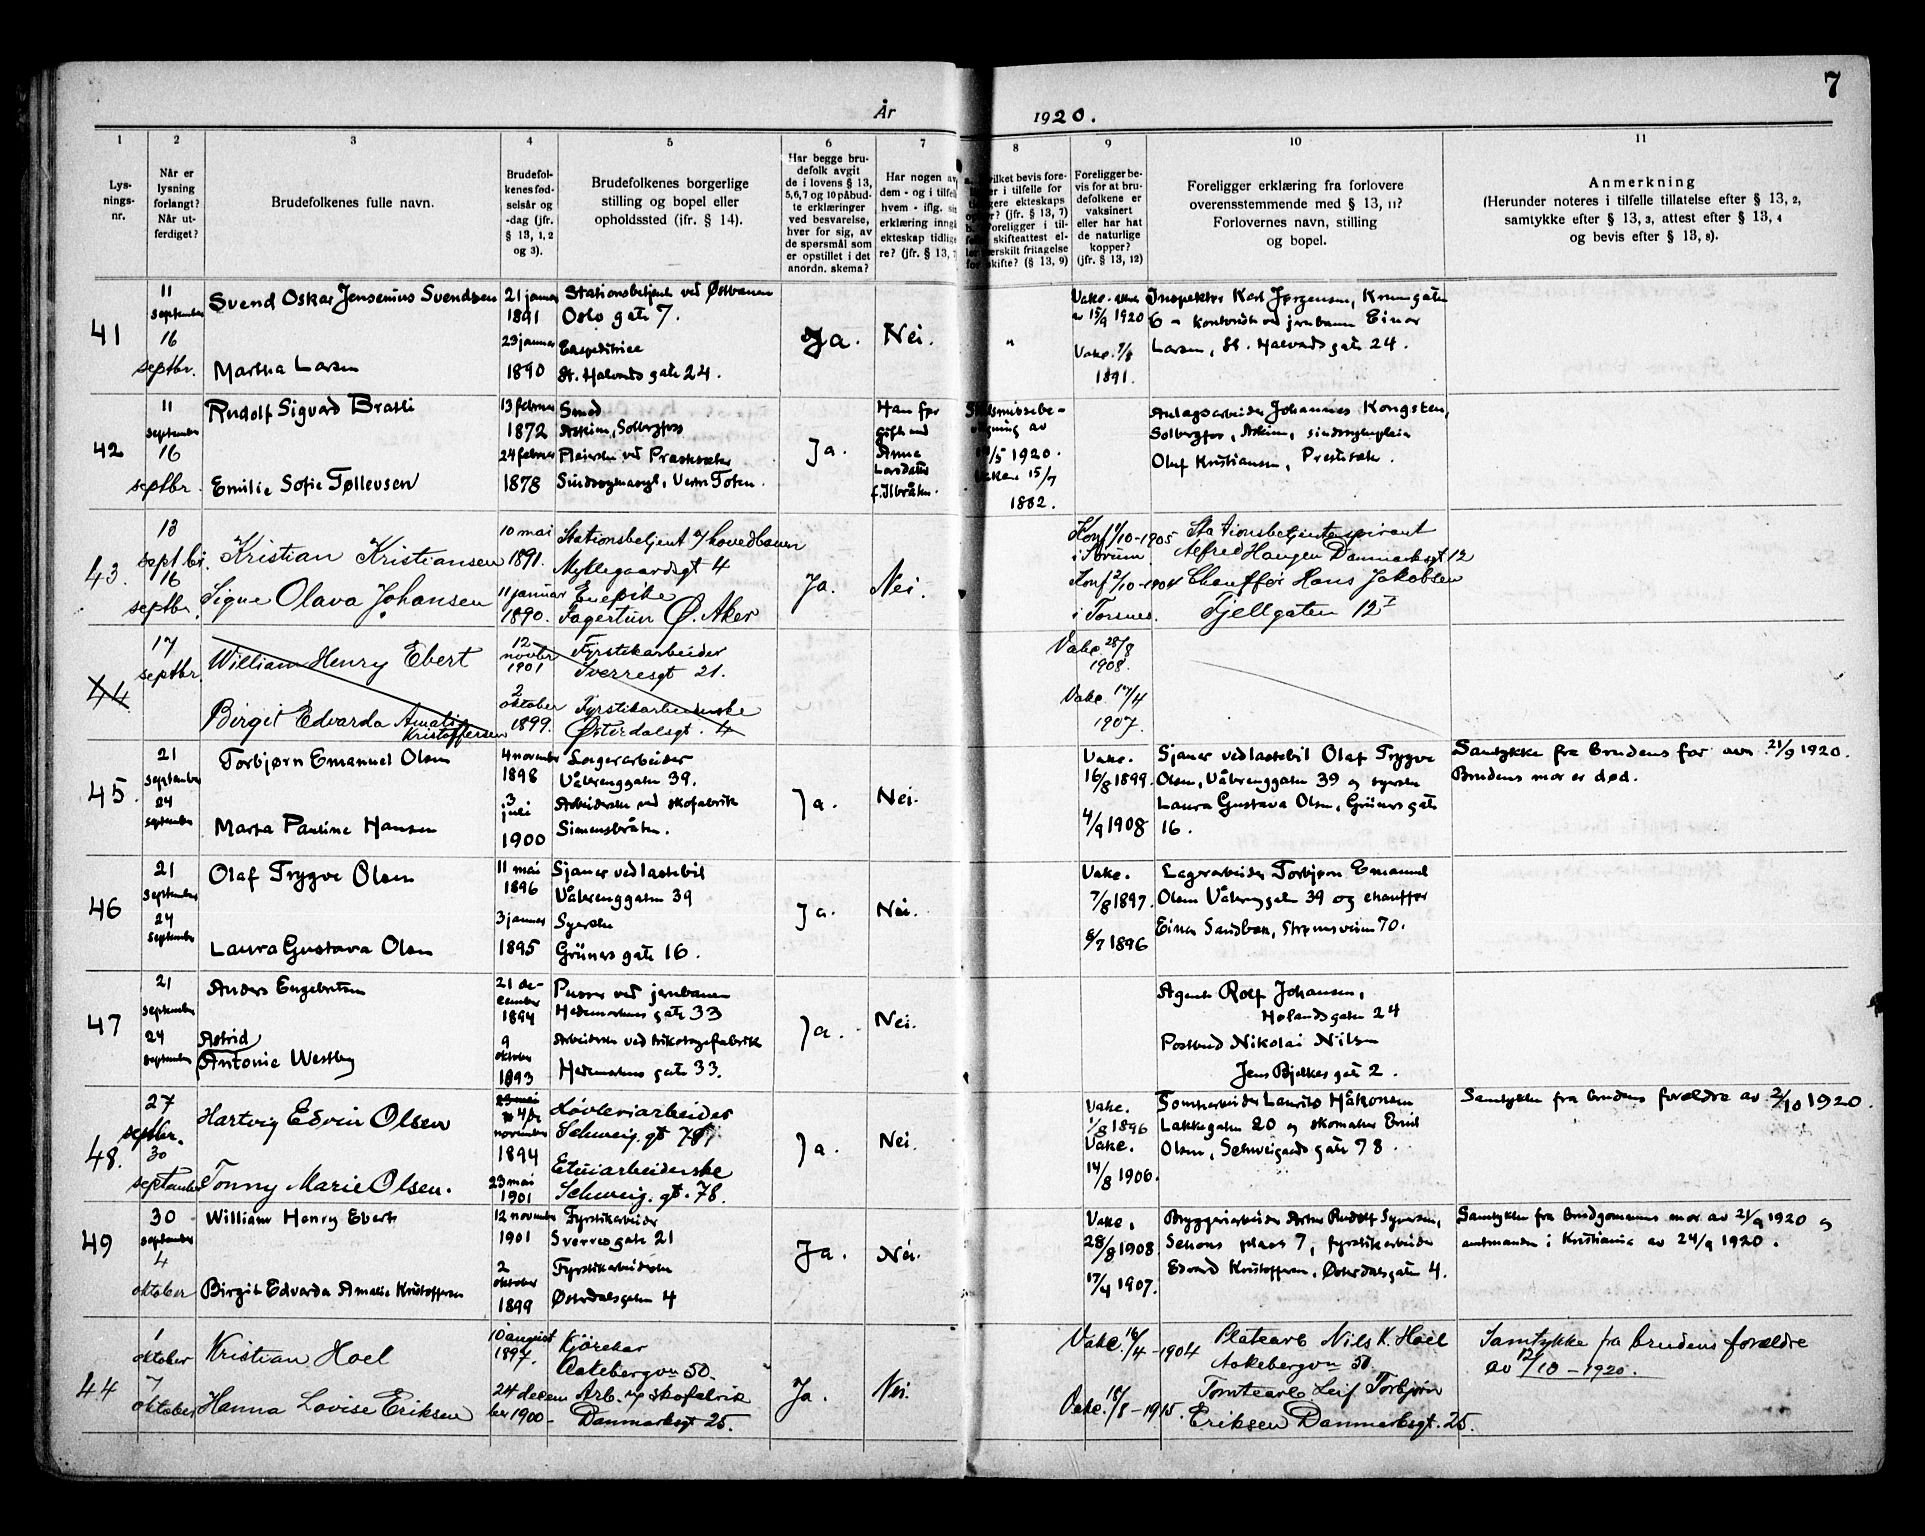 7
År 1920.
1
2
3
4
5
6
7
8
9
10
11
Lys-
nings-
nr.
Når er
lysning
forlangt?
Når ut-
ferdiget?
Brudefolkenes fulle navn.
Brudefol-
kenes fød-
selsår og
-dag (jfr.
§ 13, 1, 2
og 3).
Brudefolkenes borgerlige
stilling og bopel eller
opholdssted (jfr. § 14).
Har begge bru-
defolk avgit
de i lovens § 13,
5,6,7 og 10 påbud-
te erklæringer
ved besvarelse,
hver for sig, av
de spørsmål som
er opstillet i det
anordn. skema?
Har nogen av
dem - og i tilfelle
hvem - iflg. sin
erklæring inngå
ekteskap tidlige
re? (jfr. § 13, 7
vilket bevis fore-
er i tilfelle for
gere ekteskaps
? (jfr. § 13, 7)
b. Foreligger i til-
skifteattest el-
særskilt fritagelse
for skifte? (§ 13, 9)
Foreligger be-
vis for at bru-
defolkene er
vaksinert
eller har hat
de naturlige
kopper?
(jfr. § 13, 12)
Foreligger erklæring fra forlovere
overensstemmende med § 13, 11?
Forlovernes navn, stilling
og bopel.
Anmerkning
(Herunder noteres i tilfelle tillatelse efter § 13, 2,
samtykke efter § 13, 3, attest efter § 13, 4
og bevis efter § 13, 8).
41
11
september
16
septbr.
Svend Oskar Jensenius Svendsen
Martha Larsen
21 januar
1891
23 januar
1890
Stationsbetjent ved Østbanen
Oslo gate 7.
Ekspeditrice
St. Halvards gate 24.
Ja.
Nei.
"
15/9 1920
Vakc. 7/8
1891.
Inspektør Karl Jørgensen, Krumgaten
6 - kontorist ved jernbanen Einar
Larsen, St. Halvards gate 24.
42
11
september
16
septbr.
Rudolf Sigvard Bratli
Emilie Sofie Tøllevsen
13 februar
1872
24 februar
1878
Smed
Askim, Solbergfoss
Pleierske ved Prestsæter
Sindssykeasyl, Vestre Toten.
Ja.
Han før
gift med
Anna
Larsdatter
f. Ilbråten.
Skilsmissebe-
vilgning av
/5 1920.
15/9
1882.
Anlagsarbeider Johannes Kongsten,
Solbergfoss, Askim, sindssykepleier
Olaf Kristiansen, Prestsæter.
43.
13
septbr.
16
septbr.
Kristian Kristiansen
Signe Olava Johansen
10 mai
1891.
11 januar
1890.
Stationsbetjent v/ hovedbanen
Myklegaardsgt 4
Enepike
Fagertun Ø. Aker
Ja.
Nei.
Konf 1/10-1905
i Sørum
Konf 2/10-1904
i Torsnes.
Stationsbetjentaspirant
Alfred Haugen Danmarksgt 12
Chauffør Hans Jakobsen
Fjellgaten 12 I
44
17
septbr.
William Henry Ebert
Birgit Edvarda Amalie
Kristoffersen
12
novbr
1901
2
oktober
1899.
Fyrstikarbeider
Sverresgt 21.
Fyrstikarbeiderske
Østerdalsgt. 4
Vakc. 28/8
1908.
Vakc. 17/4
1907.
45.
21
september
24
september
Torbjørn Emanuel Olsen
Marta Pauline Hansen
4 november
1898
3
juli
1900
Lagerarbeider
Vålerenggaten 39.
Arbeiderske ved skofabrik
Simensbråten.
Ja.
Nei.
Vakc.
16/8 1899.
4/9 1908
Sjauer ved lastebil Olaf Trygve
Olsen, Vålerenggaten 39 og syerske
Laura Gustava Olsen, Grüners gate
16.
Samtykke fra brudens far avn 21/9 1920.
Brudens mor er død.
46
21
september
24
september
Olaf Trygve Olsen
Laura Gustava Olsen
11 mai
1896
3 januar
1895
Sjauer ved lastebil
Vålerenggaten 39
Syerske
Grüners gate 16.
Ja.
Nei.
Vakc.
7/8 1897.
8/7 1896
Lagerarbeider Torbjørn Emanuel
Olsen Vålerenggaten 39 og chauffør
Einar Sandbæk, Strømsveien 70.
47
21
september
24
september
Anders Engebretsen
Astrid
Antonie Westby
21 de-
cember
1894
9
oktober
1893
Pusser ved jernbanen
Hedemarkens gate 33
Arbeiderske ved trikotagefabrik
Hedemarkens gate 33.
Ja.
Nei.
Agent Rolf Johansen,
Hølandsgaten 24
Postbud Nikolai Nilsen
Jens Bjelkes gate 2.
48.
27
septbr.
30
september
Hartvig Edvin Olsen
Tonny Marie Olsen.
23 mai
november
1894
23 mai
1901
Løvleriarbeider
Schweig. gt 78,
Etuiarbeiderske
Schweig. gt. 78.
Ja.
Nei.
Vakc.
1/8 1896
Vakc.
14/8 1906.
Tomtearbeider Laurits Håkonsen
Lakkegaten 20 og skomaker
Olsen, Schweigaards gate 78.
Samtykke fra brudens forældre av 2/10 1920.
49
30
september
4
oktober
William Henry Ebert
Birgit Edvarda Amalie Kristoffersen
12 november
1901
2
oktober
1899
Fyrstikarbeider
Sverres gate 21
Fyrstikarbeiderske
Østerdalsgaten 4
Ja.
Nei.
Vakc.
28/8 1908.
17/4 1907.
Bryggeriarbeider Rudolf Syversen,
Schous plass 7, fyrstikarbeider
Edvard Kristoffersen, Østerdalsgaten 4.
Samtykke fra brudgommens mor av 21/9 1920 og
amtmanden i Kristiania av 24/9 1920.
44
1
oktober
7
oktober
Kristian Hoel
Hanna Lovise Eriksen
10 august
1897.
24 decem
ber 1900-
Kjørekar
Aakebergvn 50.
Arb. v/ skofabrik
Danmarksgt 25.
Ja.
Nei.
Vakc. 16/4-1904
Vakc. 18/8-1915.
Platearb Nils K. Hoel
Aakebergvn 50.
Tomtearb Leif Torbjørn
Eriksen Danmarksgt. 25
Samtykke fra brudens forældre
av 12/10-1920.